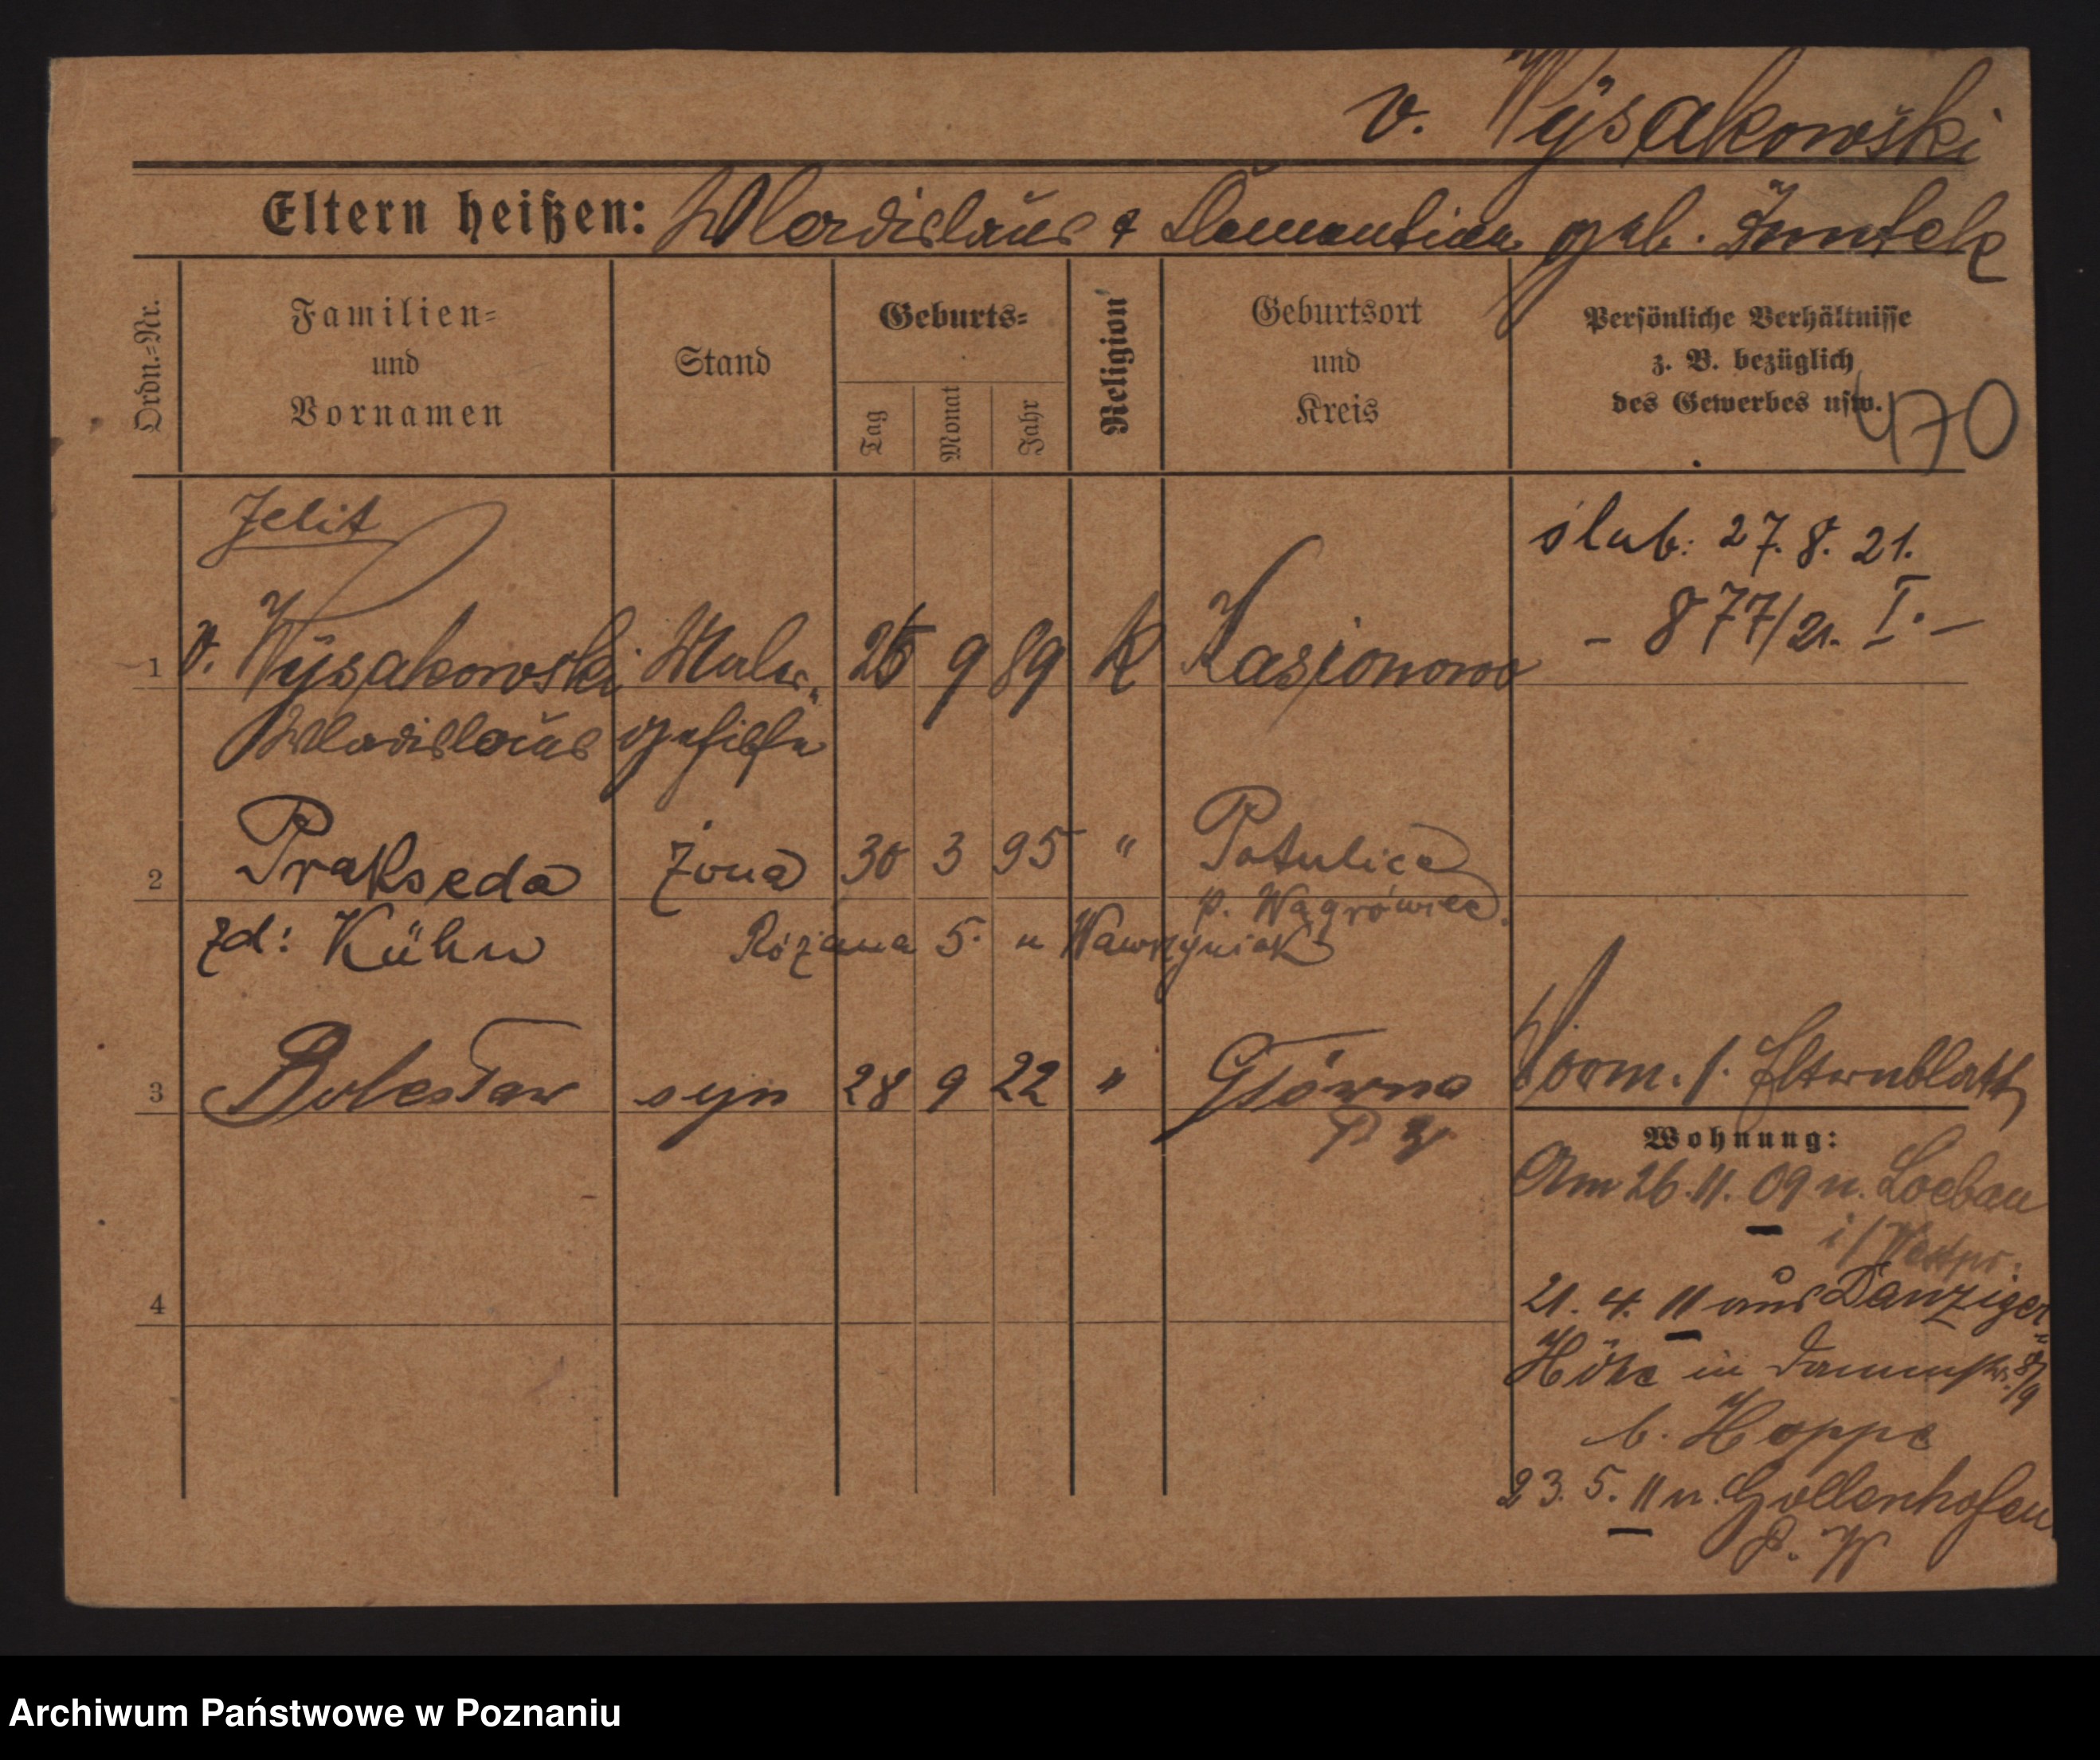 v. Wysakowski
Eltern heißen: Wladislaus & geb.
Ordn.=Nr.
Familien=
und
Vornamen
Stand
Geburts=
Tag
Monat
Jahr
Religion
Geburtsort
und
Kreis
Persönliche Verhältnisse
z. B. bezüglich
des Gewerbes usw.
470
Jelit
ślub: 27. 8. 21.
- 877/21. I. -
1 v. Wysakowski Maler= 26 9 89 K Kasionowo
Wladislaus gehilfe
2 Prakseda żona 30 3 95 " Potulice
p. Wągrówiec.
zd: Kühn Różana 5. u Wawrzyniak
3 Bolesław syn 28 9 22 " Główna
Vorm. s. Elternblatt
Wohnung:
Am 26.11.09 n. Loebau
i/Westpr.
4
21. 4. 11 aus Danziger=
Höhe in 8/9
b. Hoppe
23. 5. 11 n. Gollenhofen
P. W
Archiwum Państwowe w Poznaniu